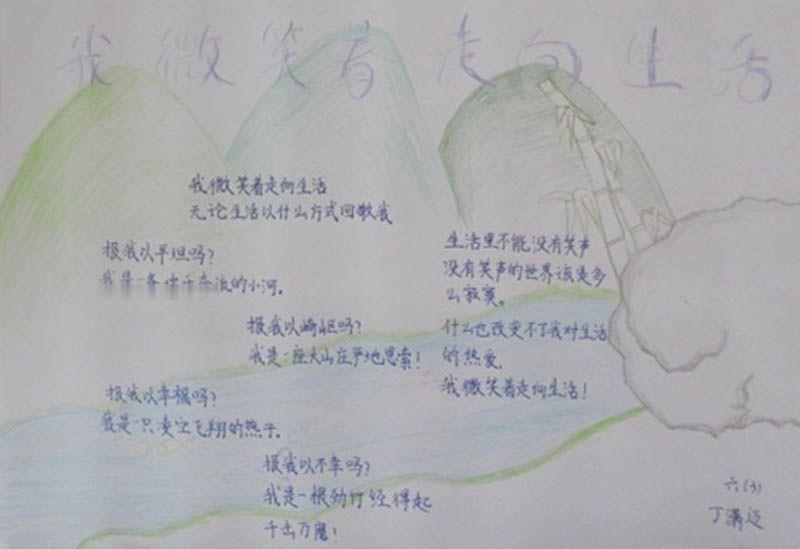 我微笑着走向生活
我微笑着走向生活
无论生活以什么方式回敬我
报我以平坦吗?
我是一条流的小河。
报我以崎岖吗?
我是一座大山庄严地思索!
报我以幸福吗?
我是一只凌空飞翔的燕子。
报我以不幸吗?
我是一根劲竹经得起
千击万磨!
生活里不能没有笑声
没有笑声的世界该是多
么寂寞。
什么也改变不了我对生活
的热爱。
我微笑着走向生活!
六(3)
丁满